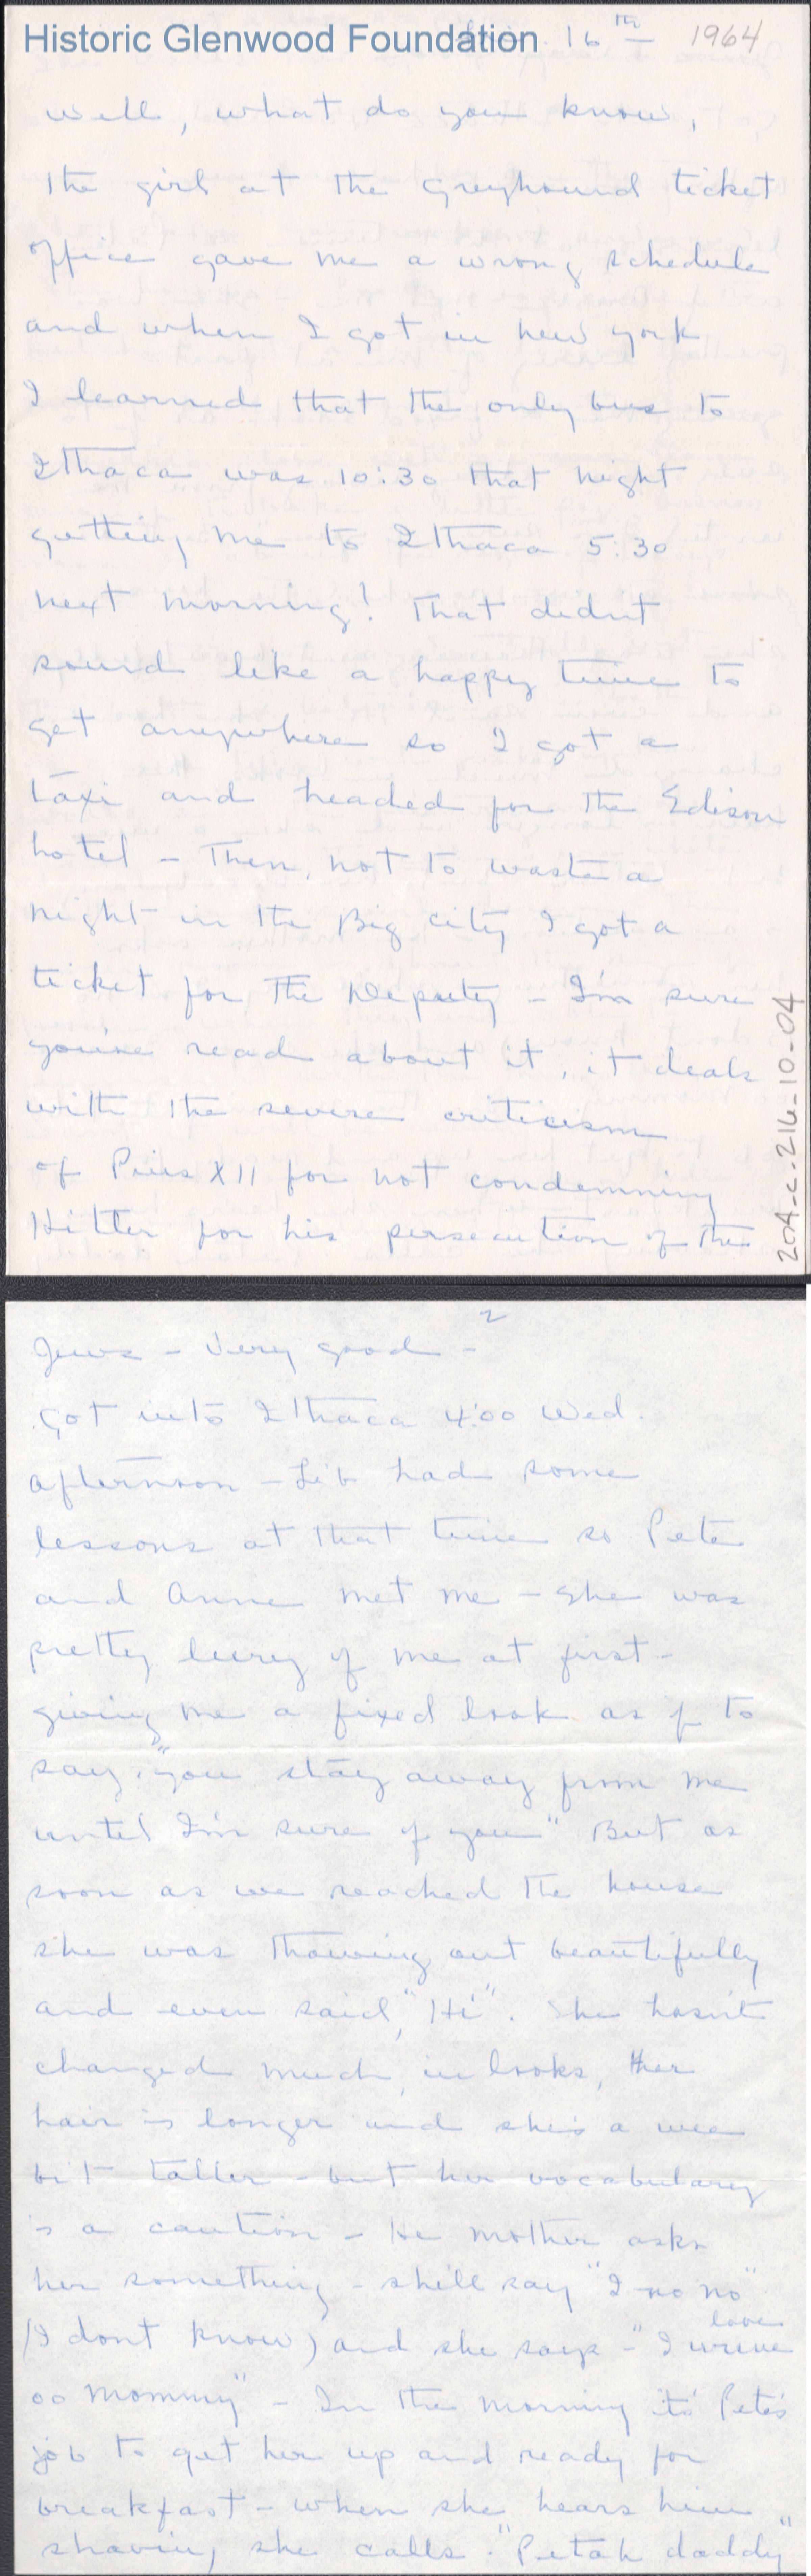 Historic Glenwood Foundation
16th 1964
Well, what do you know,
the girl at the Greyhound ticket
office gave me a wrong schedule
and when I got in New York
I learned that the only bus to
Ithaca was 10:30 that night
getting me to Ithaca 5:30
next morning! That didn't
sound like a happy time to
get anywhere so I got a
taxi and headed for the Edison
hotel - Then, not to waste a
night in the Big City I got a
ticket for The Deputy - I'm sure
you've read about it, it deals
with the severe criticism
of Pius XII for not condemning
Hitler for his persecution of the
204-c-216-10-04
2
Jews - Very good -
Got into Ithaca 4:00 Wed.
afternoon - Lib had some
lessons at that time so Pete
and Anne met me - She was
pretty leery of me at first -
giving me a fixed look as if to
say, "you stay away from me
until I'm sure of you" But as
soon as we reached the house
she was thawing out beautifully
and even said, "Hi". She hasn't
changed much, in looks, her
hair is longer and she's a wee
bit taller - but her vocabulary
is a caution - He mother asks
her something - she'll say "I no no"
(I dont know) and she says - "I wuve
love
oo Mommy" - In the morning its Pete's
job to get her up and ready for
breakfast - when she hears him
shaving she calls. "Petah daddy"